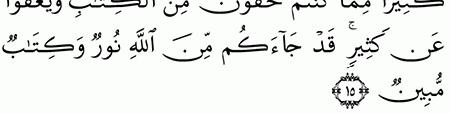 كَثِيرًا مِّمَّا كُنتُمْ تُخْفُونَ مِنَ ٱلْكِتَٰبِ وَيَعْفُوا۟
عَن كَثِيرٍۢ ۚ قَدْ جَآءَكُم مِّنَ ٱللَّهِ نُورٌۭ وَكِتَٰبٌۭ
مُّبِينٌۭ ﴿١٥﴾